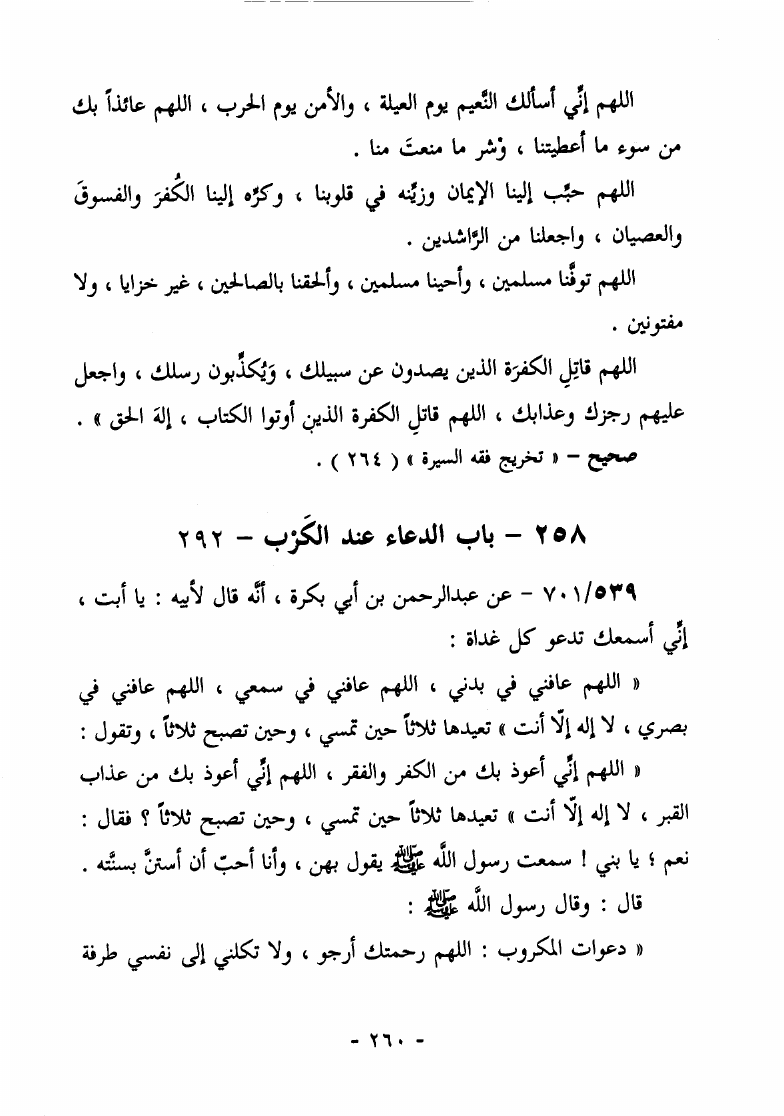 اللهم إنِّي أسألك النَّعيم يوم العيلة ، والأمن يوم الحرب ، اللهم عائذاً بك
من سوء ما أعطيتنا ، وْشر ما منعتَ منا .
اللهم حبِّب إلينا الإيمان وزيِّنه في قلوبنا ، وكرِّه إلينا الكُفرَ والفسوقَ
والعصيان ، واجعلنا من الرَّاشدين .
اللهم توفَّنا مسلمين ، وأحينا مسلمين ، وألحقنا بالصالحين ، غير خزايا ، ولا
مفتونين .
اللهم قاتِلِ الكفرَة الذين يصدون عن سبيلك ، وَيُكذِّبون رسلك ، واجعل
عليهم رجزك وعذابك ، اللهم قاتلِ الكفرة الذين أوتوا الكتاب ، إلهَ الحق » .
صحيح – « تخريج فقه السيرة » ( ٢٦٤ ) .
٢٥٨ – باب الدعاء عند الكَرْب – ٢٩٢
٧٠١/٥٣٩ – عن عبدالرحمن بن أبي بكرة ، أنَّه قال لأبيه : يا أبت ،
إنِّي أسمعك تدعو كل غداة :
« اللهم عافني في بدني ، اللهم عافني في سمعي ، اللهم عافني في
بصري ، لا إله إلّا أنت » تعيدها ثلاثاً حين تمسي ، وحين تصبح ثلاثاً ، وتقول :
« اللهم إنِّي أعوذ بك من الكفر والفقر ، اللهم إنِّي أعوذ بك من عذاب
القبر ، لا إله إلّا أنت » تعيدها ثلاثاً حين تمسي ، وحين تصبح ثلاثاً ؟ فقال :
نعم ؛ يا بني ! سمعت رسول اللَّه ﷺ يقول بهن ، وأنا أحبّ أن أستنَّ بسنَّته .
قال : وقال رسول اللَّه ﷺ :
« دعوات المكروب : اللهم رحمتك أرجو ، ولا تكلني إلى نفسي طرفة
- ٢٦٠ -